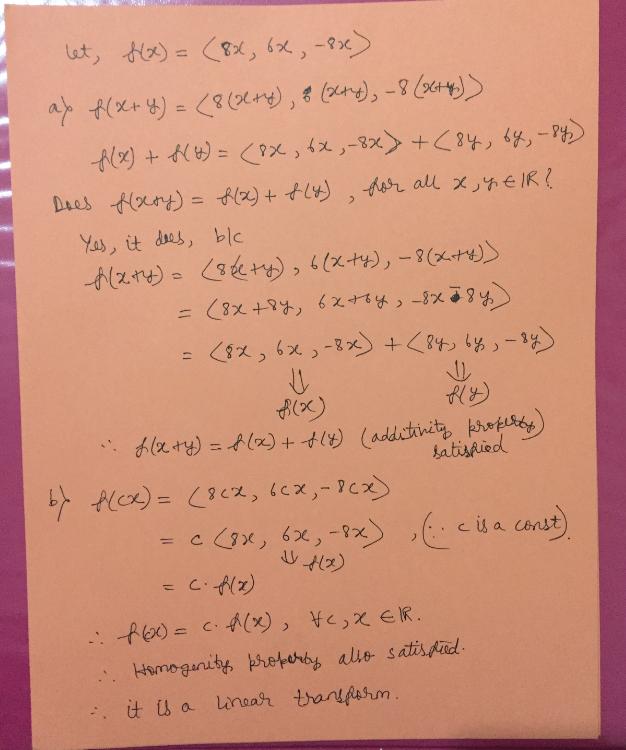 Let, f(x) = ⟨8x, 6x, -8x⟩
a) f(x+y) = ⟨8(x+y), 6(x+y), -8(x+y)⟩
f(x) + f(y) = ⟨8x, 6x, -8x⟩ + ⟨8y, 6y, -8y⟩
Does f(x+y) = f(x) + f(y), for all x, y ∈ ℝ?
Yes, it does, b/c
f(x+y) = ⟨8(x+y), 6(x+y), -8(x+y)⟩
= ⟨8x+8y, 6x+6y, -8x-8y⟩
= ⟨8x, 6x, -8x⟩ + ⟨8y, 6y, -8y⟩
⇓ ⇓
f(x) f(y)
∴ f(x+y) = f(x) + f(y) (additinity property
satisfied)
b) f(cx) = ⟨8cx, 6cx, -8cx⟩
= c ⟨8x, 6x, -8x⟩, (∵ c is a const).
⇓ f(x)
= c·f(x)
∴ f(cx) = c·f(x), ∀c, x ∈ ℝ.
∴ Homogenity property also satisfied.
∴ it is a linear transform.